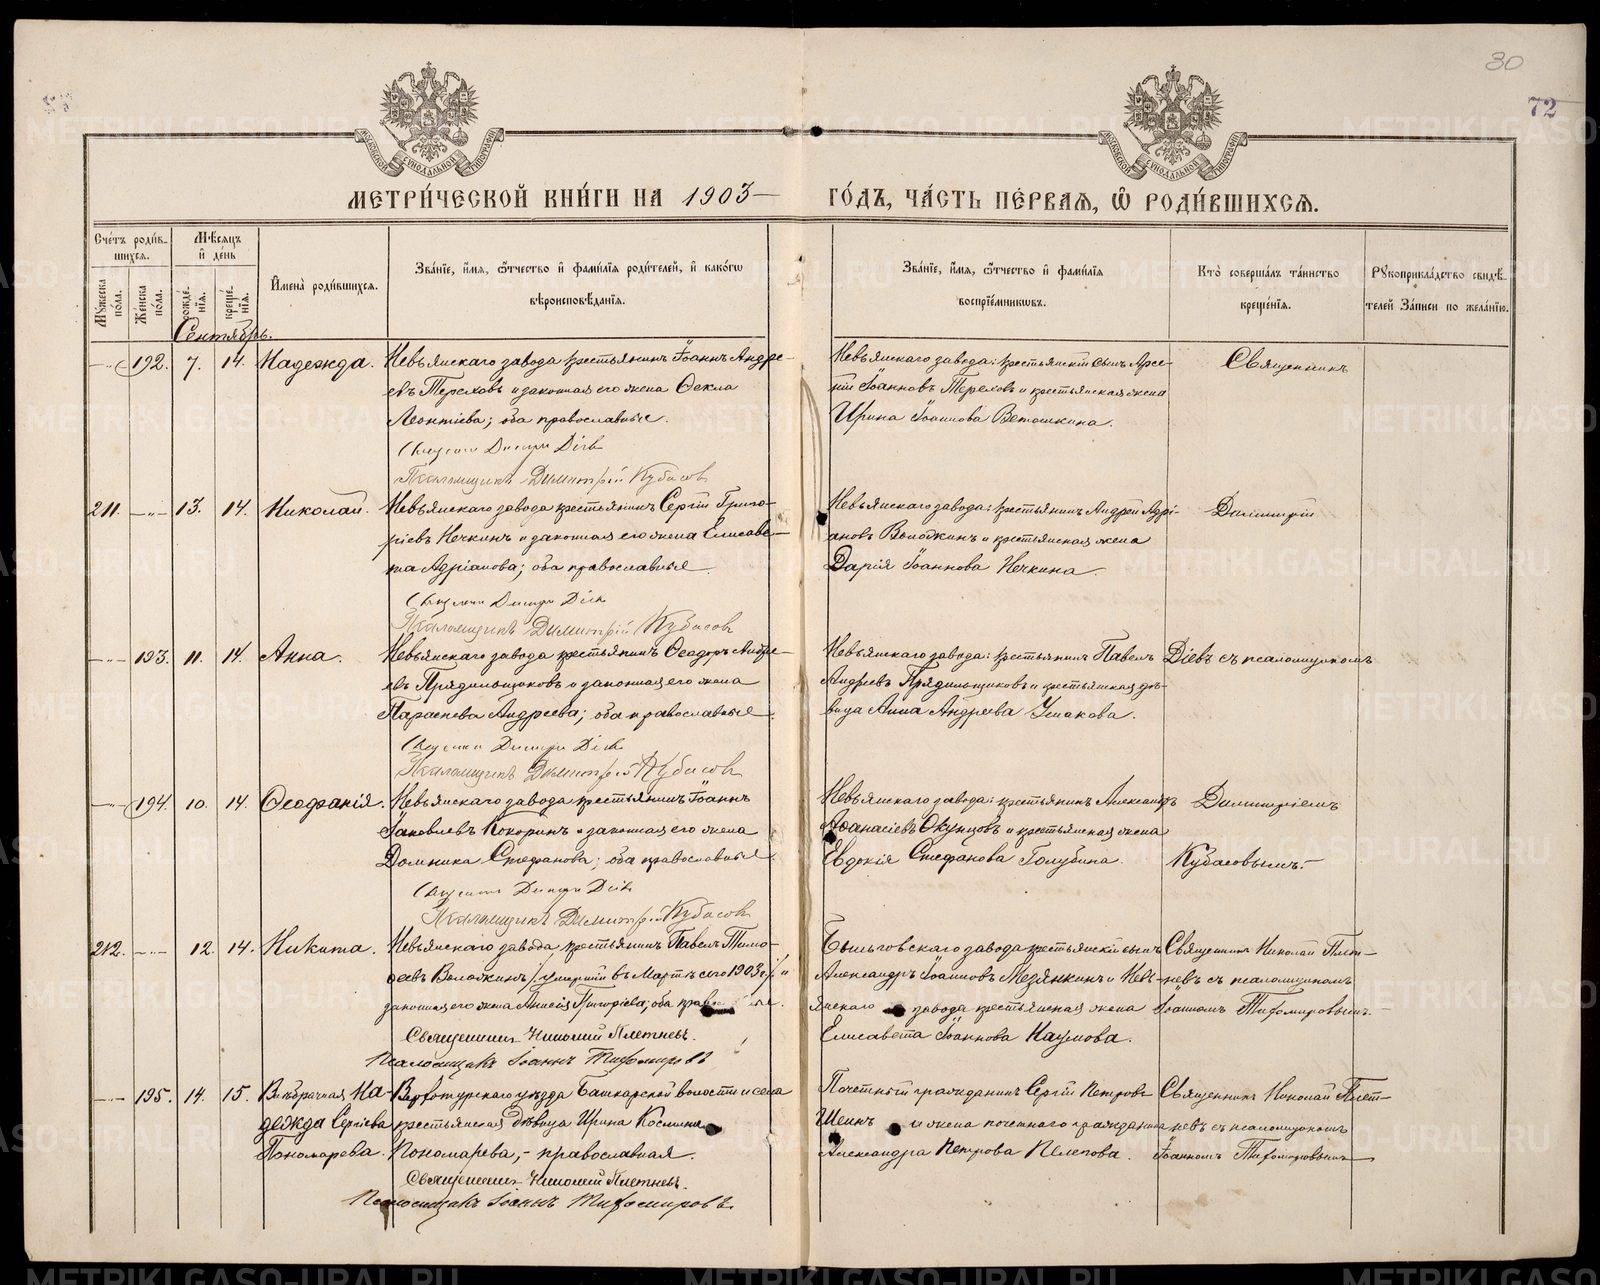 30
72
МОСКОВСКОЙ СѴНОДАЛЬНОЙ ТИПОГРАФІИ
МОСКОВСКОЙ СѴНОДАЛЬНОЙ ТИПОГРАФІИ
МЕТРИ́ЧЕСКОЙ КНИ́ГИ НА 1903 ГО́ДЪ, ЧА́СТЬ ПЕ́РВАЯ, Ѡ РОДИ́ВШИХСЯ.
Сче́тъ роди́вшихся.
Му́жеска по́ла.
Же́нска по́ла.
Мѣ́сяцъ и҆ де́нь
рожде́нїя.
креще́нїя.
И҆мена̀ роди́вшихся.
Зва́нїе, и҆́мя, ѻ҆́тчество и҆ фами́лїя роди́телей, и҆ како́гѡ вѣроисповѣ́данїя.
Зва́нїе, и҆́мя, ѻ҆́тчество и҆ фами́лїя воспрїе́мникѡвъ.
Кто̀ соверша́лъ та́инство креще́нїя.
Рꙋкоприкла́дство свидѣ́телей за́писи по жела́нїю.
Сентябрь.
-„- 192. 7. 14. Надежда.
Невьянскаго завода крестьянинъ Іоаннъ Андре-
евъ Тереховъ и законная его жена Ѳекла
Леонтіева; оба православные.
Священник Димитрий Діев
Псаломщикъ Димитрій Кубасов
Невьянскаго завода: крестьянскій сынъ Арсе-
ній Іоанновъ Тереховъ и крестьянская жена
Ирина Іоаннова Ветошкина.
Священникъ
211. -„- 13. 14. Николай.
Невьянскаго завода крестьянинъ Сергій Григо-
ріевъ Нечкинъ и законная его жена Елисаве-
та Адріанова; оба православные.
Священник Димитрий Діев
Псаломщикъ Димитрій Кубасов
Невьянскаго завода: крестьянинъ Андрей Адрі-
ановъ Володкинъ и крестьянская жена
Дарія Іоаннова Нечкина.
Димитрій
-„- 193. 11. 14. Анна.
Невьянскаго завода крестьянинъ Ѳеодоръ Андре-
евъ Прядильщиковъ и законная его жена
Параскева Андреева; оба православные.
Священник Димитрий Діев
Псаломщикъ Димитрій Кубасов
Невьянскаго завода: крестьянинъ Павелъ
Андреевъ Прядильщиковъ и крестьянская дѣ-
вица Анна Андреева Ушакова.
Діевъ съ псаломщикомъ
-„- 194. 10. 14. Ѳеофанія.
Невьянскаго завода крестьянинъ Іоаннъ
Іаковлевъ Кокоринъ и законная его жена
Домника Стефанова; оба православные.
Священник Димитрий Діев
Псаломщикъ Димитрій Кубасов
Невьянскаго завода: крестьянинъ Александръ
Аѳанасіевъ Окунцовъ и крестьянская жена
Евдокія Стефанова Голубина.
Димитріемъ
Кубасовымъ.
212. -„- 12. 14. Никита.
Невьянскаго завода крестьянинъ Павелъ Тимо-
ѳеевъ Володкинъ /умершій въ Мартѣ сего 1903 г./ и
законная его жена Анисія Григоріева; оба
Священникъ Николай Плетневъ.
Псаломщикъ Іоаннъ Тихомировъ
Быньговскаго завода крестьянскій сынъ
Александръ Іоанновъ Мезянкинъ и Невь-
янскаго завода крестьянская жена
Елисавета Іоаннова Наумова.
Священникъ Николай Плет-
невъ съ псаломщикомъ
Іоанномъ Тихомировымъ.
-„- 195. 14. 15. Внѣбрачная На-
дежда Сергіева
Пономарева.
Верхотурскаго уѣзда Башкарской волости и села
крестьянская дѣвица Ирина Космина
Пономарева,- православная.
Священникъ Николай Плетневъ.
Псаломщикъ Іоаннъ Тихомировъ.
Почетный гражданинъ Сергій Петровъ
Шеинъ и жена почетнаго гражданина
Александра Петрова Пелепова.
Священникъ Николай Плет-
невъ съ псаломщикомъ
Іоанномъ Тихомировымъ
METRIKI.GASO-URAL.RU